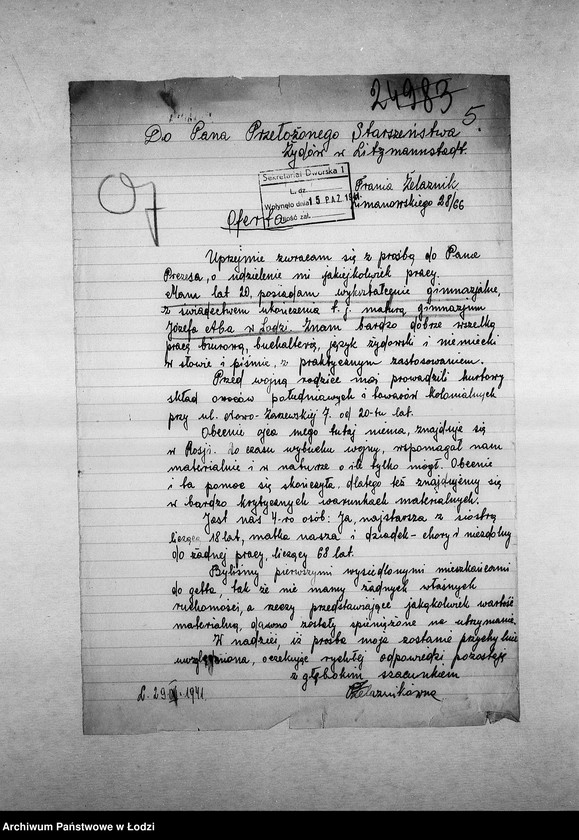 24983
5.
Do Pana Przełożonego Starszeństwa
Żydów w Litzmannstadt.
Sekretariat Dworska 1
L. dz.
Wpłynęło dnia 15. PAZ. 1941
Ilość zał.
Frania Żelaznik
Limanowskiego 28/66
Oferta
Uprzejmie zwracam się z prośbą do Pana
Prezesa, o udzielenie mi jakiejkolwiek pracy.
Mam lat 20, posiadam wykształcenie gimnazjalne,
z świadectwem ukończenia t. j. maturą gimnazjum
Józefa Aba w Łodzi. Znam bardzo dobrze wszelką
pracę biurową, buchalterią, język żydowski i niemiecki
w słowie i piśmie, z praktycznym zastosowaniem.
Przed wojną rodzice moi prowadzili hurtowy
skład owoców południowych i towarów kolonialnych
przy ul. Nowo-Zarzewskiej 7. od 20-tu lat.
Obecnie ojca mego tutaj niema, znajduje się
w Rosji. Do czasu wybuchu wojny, wspomagał nam
materialnie i w naturze o ile tylko mógł. Obecnie
i ta pomoc się skończyła, dlatego też znajdujemy się
w bardzo krytycznych warunkach materialnych.
Jest nas 4-ro osób: Ja, najstarsza z siostrą
liczącą 18 lat, matka nasza i dziadek - chory i niezdolny
do żadnej pracy, liczący 68 lat.
Byliśmy pierwszymi wysiedlonymi mieszkańcami
do getta, tak że nie mamy żadnych własnych
ruchomości, a rzeczy przedstawiające jakąkolwiek wartość
materialną, dawno zostały spieniężone na utrzymanie.
W nadziei, iż prośba moja zostanie przychylnie
uwzględniona, oczekuję rychłej odpowiedzi pozostaję
z głębokim szacunkiem
Ł. 29. 1941. FŻelaznikówna
Archiwum Państwowe w Łodzi